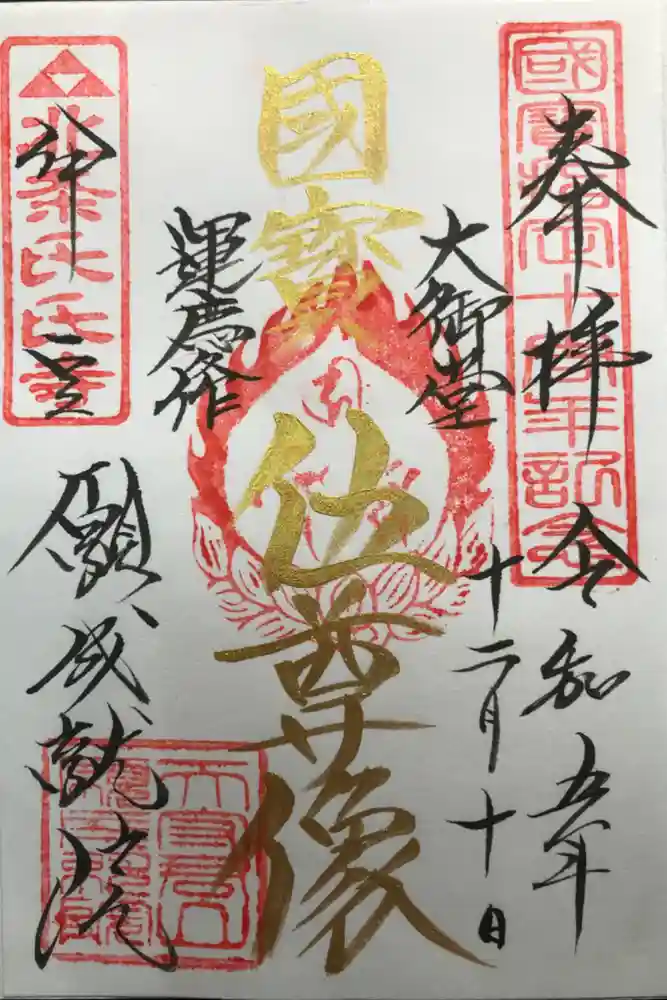 奉拜
令和五年
十二月十日
國寶指定十周年記念
大御堂
國寳
仏尊像
運慶作
伊豆
北条氏氏寺
願成就院